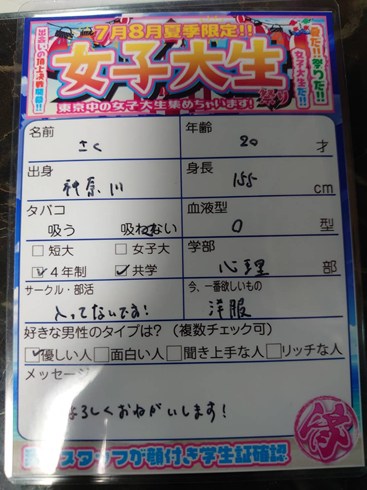 7月8月夏季限定!!
出会いの頂上決戦開幕!!
女子大生祭り
夏だ!!祭りだ!!
女子大生だ!!
東京中の女子大生集めちゃいます!
名前 さく 年齢 20 才
出身 神奈川 身長 155 cm
タバコ 吸う 吸わない 血液型 O 型
□短大 □女子大 学部
☑4年制 ☑共学 心理 部
サークル・部活 今、一番欲しいもの
入ってないです! 洋服
好きな男性のタイプは?(複数チェック可)
☑優しい人□面白い人□聞き上手な人□リッチな人
メッセージ
よろしくおねがいします!
祭
スタッフが顔付き学生証確認